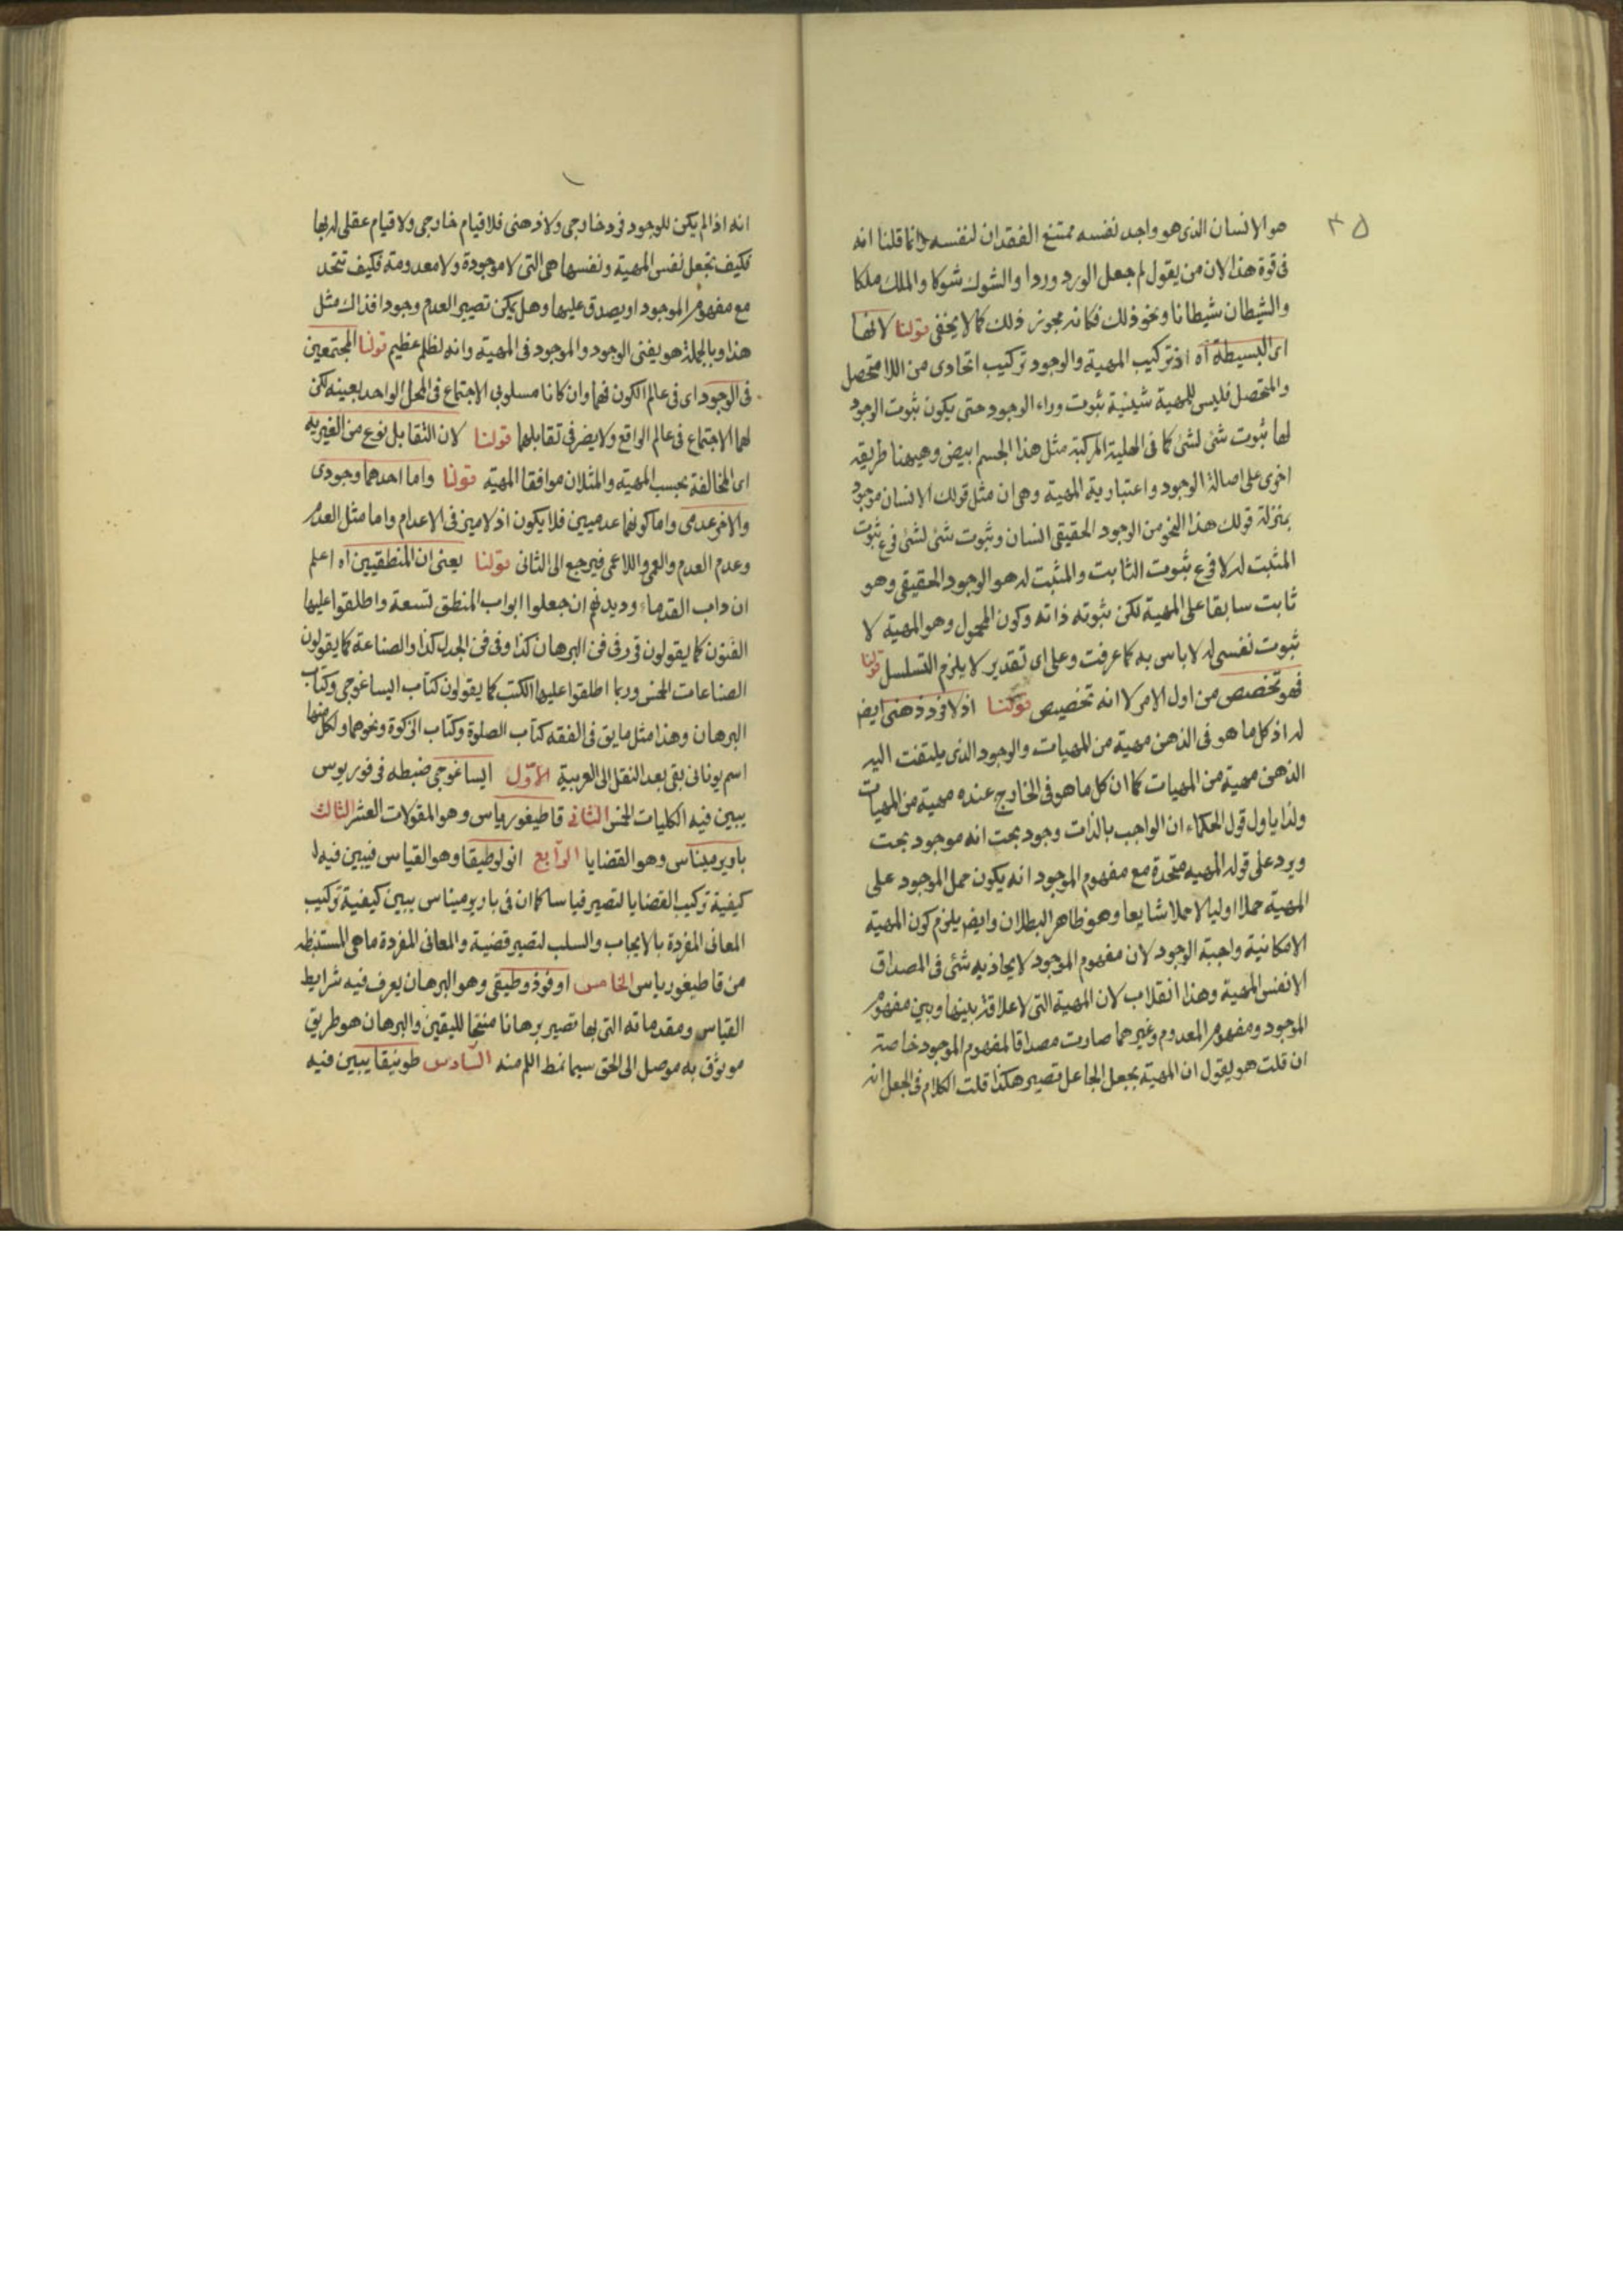 ٣٥
هو الانسان الذى هو واجد نفسه ممتنع الفقدان لنفسه وانما قلنا انه
فى قوة هذا لان من يقول لم جعل الورد وردا والشوك شوكا والملك ملكا
والشيطان شيطانا ونحو ذلك فكانه مجوز ذلك كما لا يخفى قولنا لانها
اى البسيطة آه اذ تركيب المهية والوجود تركيب اتحادى من اللامتحصل
والمتحصل فليس للمهية شيئية ثبوت وراء الوجود حتى يكون ثبوت الوجود
لها ثبوت شئ لشئ كما فى الهلية المركبة مثل هذا الجسم ابيض وهيهنا طريقه
اخرى على اصالة الوجود واعتبارية المهية وهى ان مثل قولك الانسان موجود
بمنزلة قولك هذا النحو من الوجود الحقيقى انسان وثبوت شئ لشئ فرع ثبوت
المثبت له لا فرع ثبوت الثابت والمثبت له هو الوجود الحقيقى وهو
ثابت سابقا على المهية لكن ثبوته ذاته وكون المحمول وهو المهية لا
ثبوت نفسى له لا باس به كما عرفت وعلى اى تقدير لا يلزم التسلسل قولنا
فهو تخصص من اول الامر لا انه تخصيص قولنا اذ لا فرد ذهنى ايض
له اذ كل ما هو فى الذهن مهية من المهيات والوجود الذى يلتفت اليه
الذهن مهية من المهيات كما ان كل ما هو فى الخارج عنده مهية من المهيات
ولذا ياول قول الحكماء ان الواجب بالذات وجود بحت انه موجود بحت
ويرد على قوله المهيه متحدة مع مفهوم الموجود انه يكون حمل الموجود على
المهية حملا اوليا لا حملا شايعا وهو ظاهر البطلان وايض يلزم كون المهية
الامكانية واجبة الوجود لان مفهوم الموجود لا يحاذيه شئ فى المصداق
الا نفس المهية وهذا انقلاب لان المهية التى لا علاقة بينها وبين مفهوم
الموجود ومفهوم المعدوم وغيرهما صارت مصداقا لمفهوم الموجود خاصة
ان قلت هو يقول ان المهية بجعل الجاعل تصير هكذا قلت الكلام فى الجعل انه
انه اذا لم يكن للوجود فرد خارجى ولا ذهنى فلا قيام خارجى ولا قيام عقلى له بها
فكيف تجعل نفس المهية ونفسها هى التى لا موجودة ولا معدومة فكيف تتحد
مع مفهوم الموجود او يصدق عليها وهل يمكن تصيير العدم وجودا فذاك مثل
هذا وبالجملة هو يفنى الوجود والموجود فى المهية وانه لظلم عظيم قولنا المجتمعين
فى الوجود اى فى عالم الكون فهما وان كانا مسلوبى الاجتماع فى المحل الواحد بعينه لكن
لهما الاجتماع فى عالم الواقع ولا يضر فى تقابلهما قولنا لان التقابل نوع من الغيريه
اى المخالفة بحسب المهية والمثلان موافقا المهية قولنا واما احدهما وجودى
والاخر عدمى واما كونهما عدميين فلا يكون اذ لا ميز فى الاعدام واما مثل العدم
وعدم العدم والعمى واللاعمى فيرجع الى الثانى قولنا يعنى ان المنطقيين آه اعلم
ان داب القدماء وديدنهم ان جعلوا ابواب المنطق تسعة واطلقوا عليها
الفنون كما يقولون قرر فى فن البرهان كذا وفى فن الجدل كذا والصناعة كما يقولون
الصناعات الخمس وربما اطلقوا عليها الكتب كما يقولون كتاب ايساغوجى وكتاب
البرهان وهذا مثل ما يق فى الفقه كتاب الصلوة وكتاب الزكوة ونحوهما ولكل منها
اسم يونانى بقى بعد النقل الى العربية الاول ايساغوجى ضبطه فرفوريوس
يبين فيه الكليات الخمس الثانى قاطيغورياس وهو المقولات العشر الثالث
باريرميناس وهو القضايا الرابع انولوطيقا وهو القياس فيبين فيه
كيفية تركيب القضايا لتصير قياسا كما ان فى باريرميناس يبين كيفية تركيب
المعانى المفردة بالايجاب والسلب لتصير قضية والمعانى المفردة ما هى المستنبطه
من قاطيغورياس الخامس اوفوذوطيقى وهو البرهان يعرف فيه شرايط
القياس ومقدماته التى بها تصير برهانا منتجا لليقين والبرهان هو طريق
موثوق به موصل الى الحق سيما نمط اللم منه السادس طونيقا يبين فيه